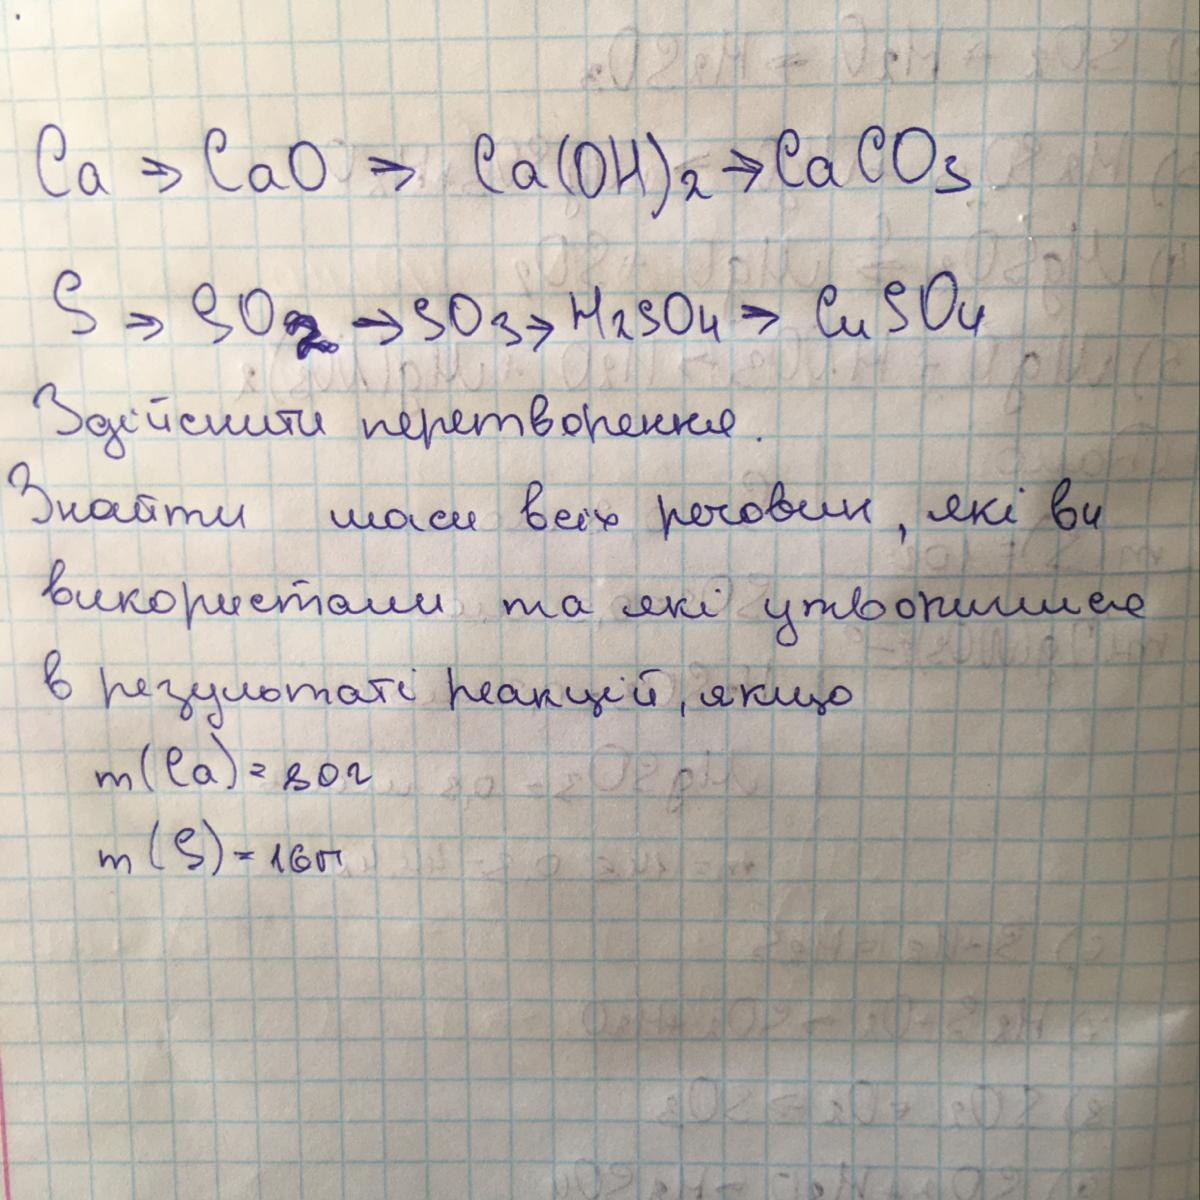 Ca → CaO → Ca(OH)2 → CaCO3
S → SO2 → SO3 → H2SO4 → CuSO4
Здійснити перетворення.
Знайти маси всіх речовин, які ви
використали та які утворилися
в результаті реакцій, якщо
m(Ca) = 80г
m(S) = 16г